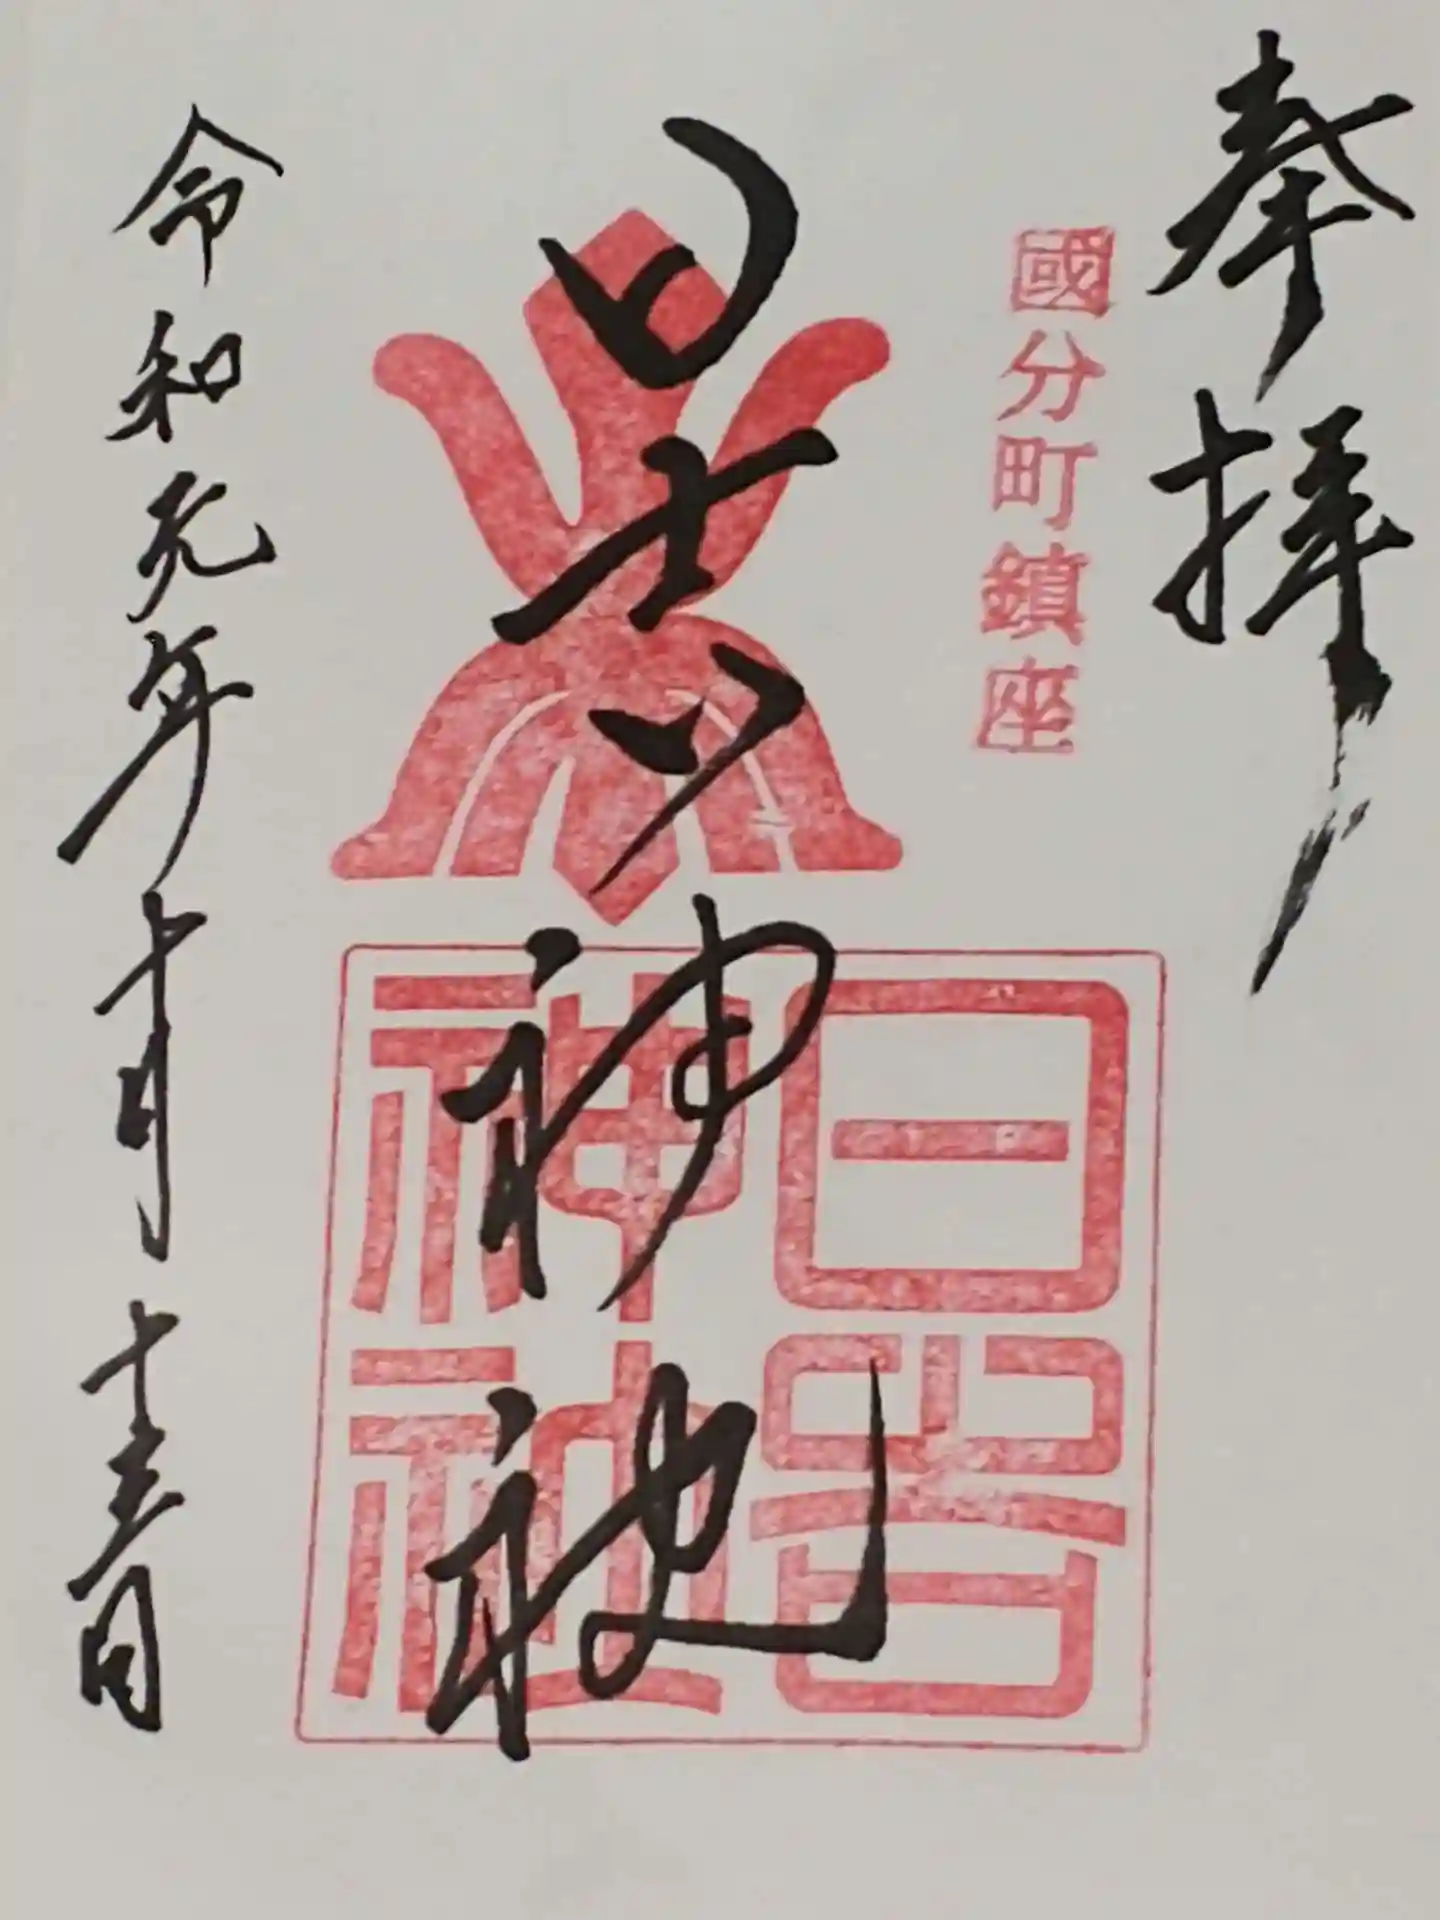 奉拝
國分町鎮座
日吉神社
日吉神社
令和元年十月十五日